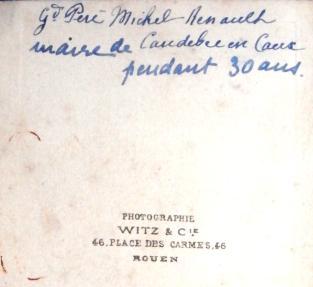 Gd Père Michel Renault
maire de Caudebec en Caux
pendant 30 ans.
PHOTOGRAPHIE
WITZ & CIE
46, PLACE DES CARMES, 46
ROUEN